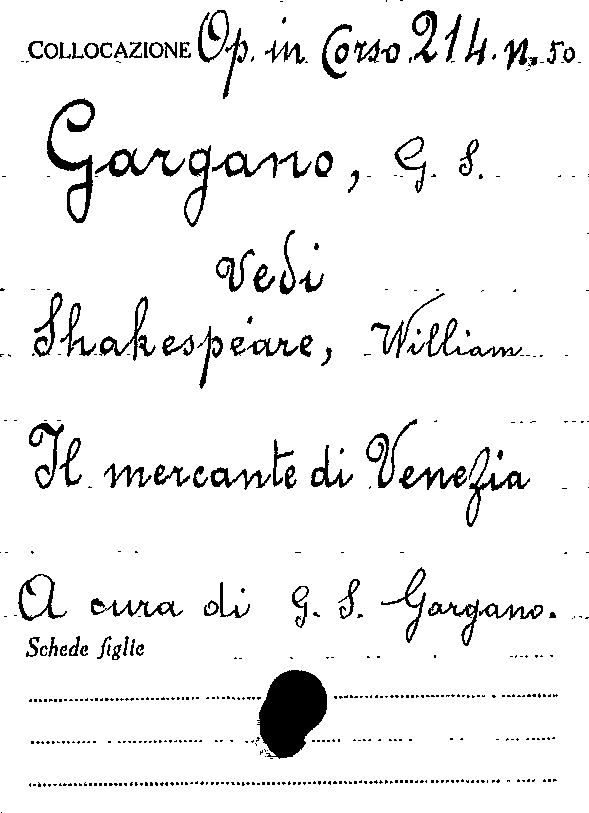 COLLOCAZIONE Op. in Corso 214. n. 50
Gargano, G. S.
vedi
Shakespeare, William
Il mercante di Venezia
A cura di G. S. Gargano.
Schede figlie